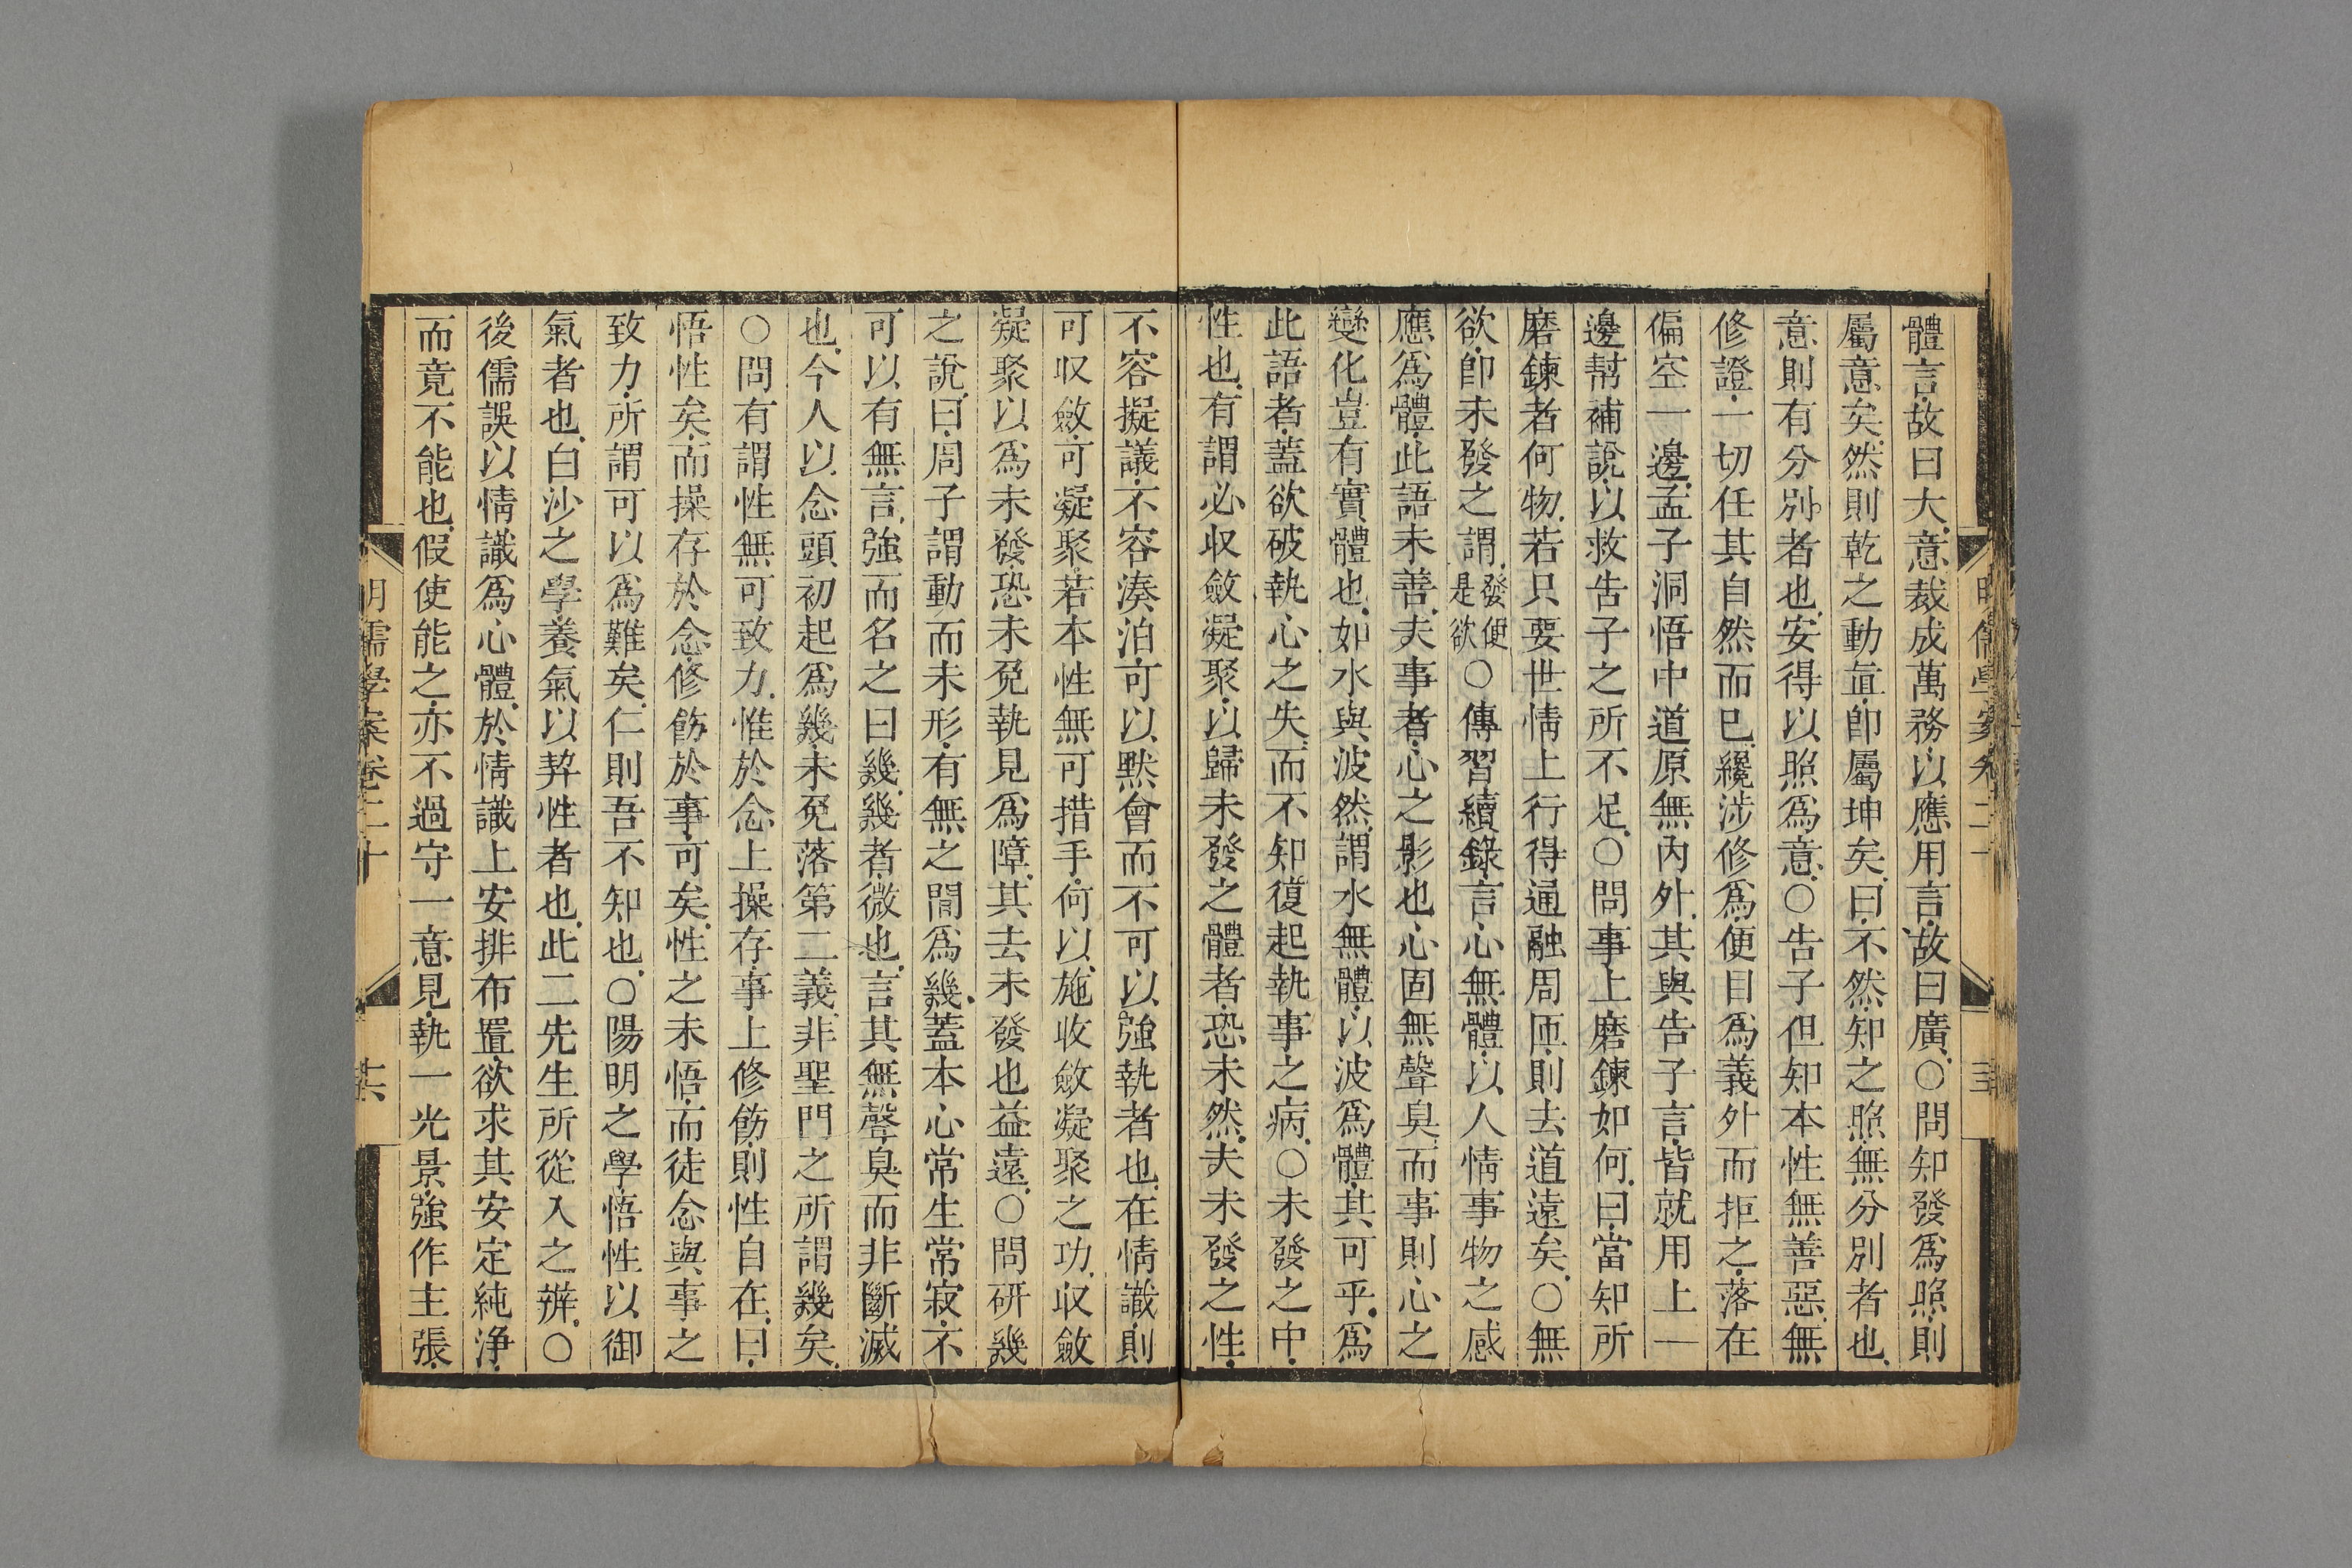 體言故曰大意裁成萬務以應用言故曰廣○問知發爲照則
屬意矣然則乾之動直卽屬坤矣曰不然知之照無分別者也
意則有分別者也安得以照爲意○告子但知本性無善惡無
修證一切任其自然而已纔涉修爲便目爲義外而拒之落在
偏空一邊孟子洞悟中道原無內外其與告子言皆就用上一
邊幫補說以救告子之所不足○問事上磨鍊如何曰當知所
磨鍊者何物若只要世情上行得通融周匝則去道遠矣○無
欲卽未發之謂發便是欲○傳習續錄言心無體以人情事物之感
應爲體此語未善夫事者心之影也心固無聲臭而事則心之
變化豈有實體也如水與波然謂水無體以波爲體其可乎爲
此語者蓋欲破執心之失而不知復起執事之病○未發之中
性也有謂必収斂凝聚以歸未發之體者恐未然夫未發之性
不容擬議不容湊泊可以默會而不可以強執者也在情識則
可収斂可凝聚若本性無可措手何以施收斂凝聚之功収斂
凝聚以爲未發恐未免執見爲障其去未發也益遠○問研幾
之說曰周子謂動而未形有無之間爲幾蓋本心常生常寂不
可以有無言強而名之曰幾幾者微也言其無聲臭而非斷滅
也今人以念頭初起爲幾未免落第二義非聖門之所謂幾矣
○問有謂性無可致力惟於念上操存事上修飭則性自在曰
悟性矣而操存於念修飭於事可矣性之未悟而徒念與事之
致力所謂可以爲難矣仁則吾不知也○陽明之學悟性以御
氣者也白沙之學養氣以契性者也此二先生所從入之辨○
後儒誤以情識爲心體於情識上安排布置欲求其安定純淨
而竟不能也假使能之亦不過守一意見執一光景強作主張
明儒學案卷二十